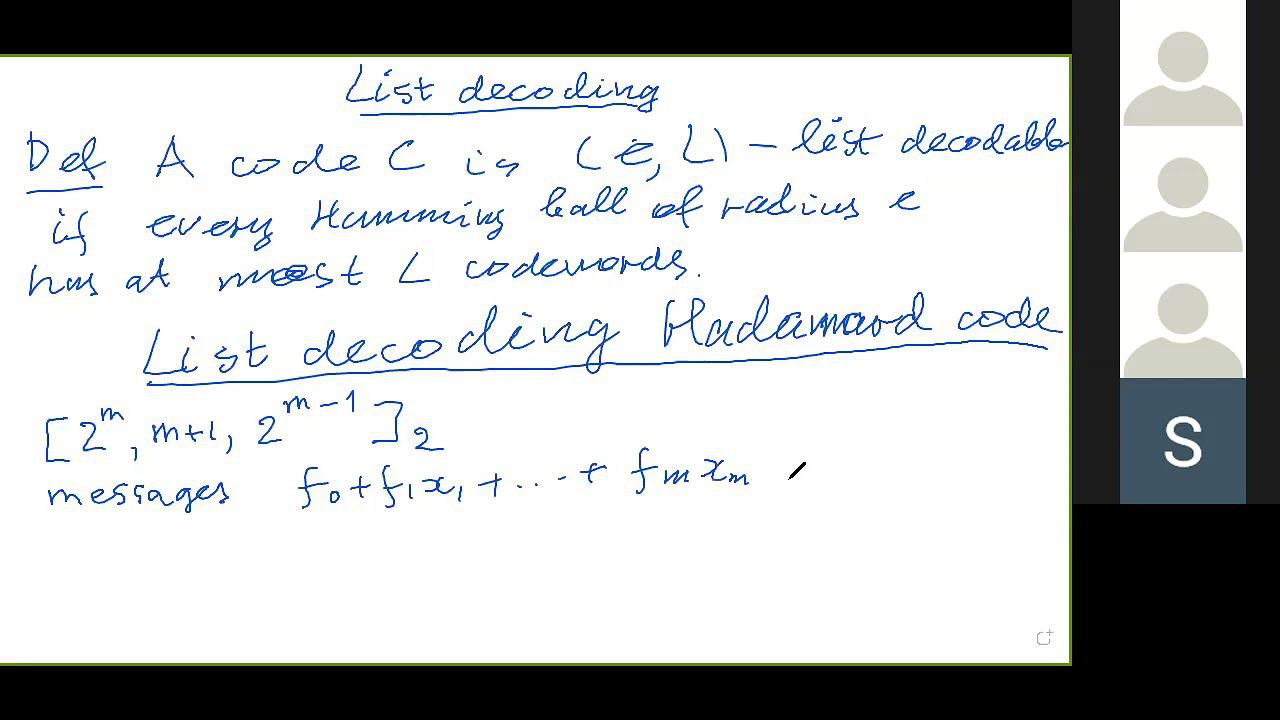 List decoding
Def A code C is (e, L) - list decodable
if every Hamming ball of radius e
has at most L codewords.
List decoding Hadamard code
[2^m, m+1, 2^{m-1}]_2
messages f_0 + f_1 x_1 + ... + f_m x_m
S